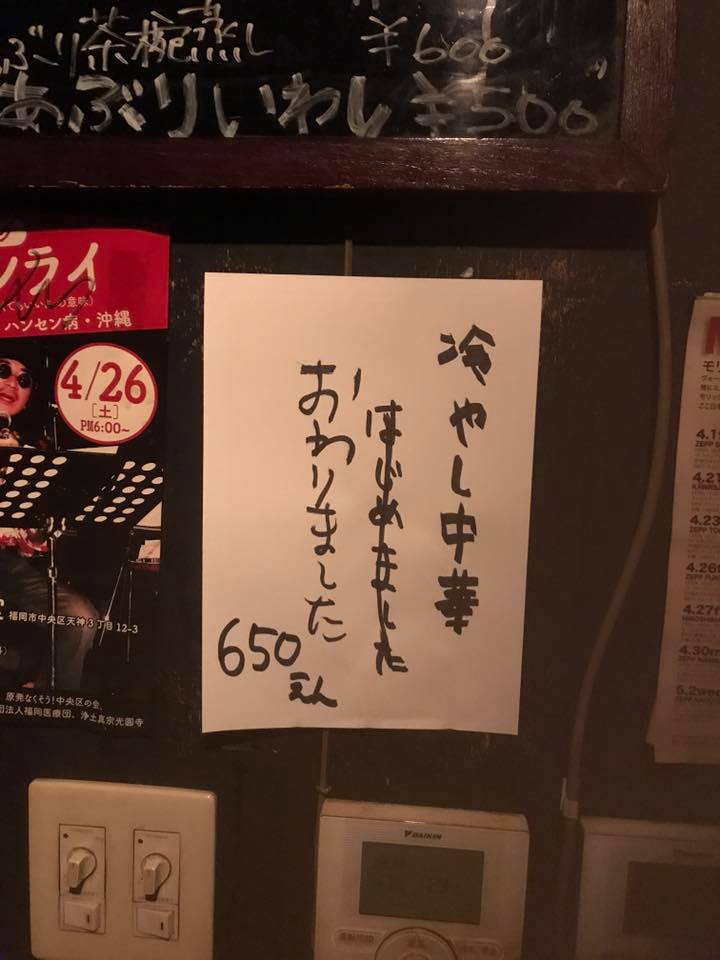 ぶり茶椀蒸し ¥600
あぶりいわし ¥500
冷やし中華
はじめました
おわりました
650えん
ライ
の意味)
ハンセン病・沖縄
4/26
[土]
PM6:00~
福岡市中央区天神3丁目12-3
原発なくそう!中央区の会、
団法人福岡医療団、浄土真宗光圓寺
4.23
4.27
4.30
5.2
DAIKIN